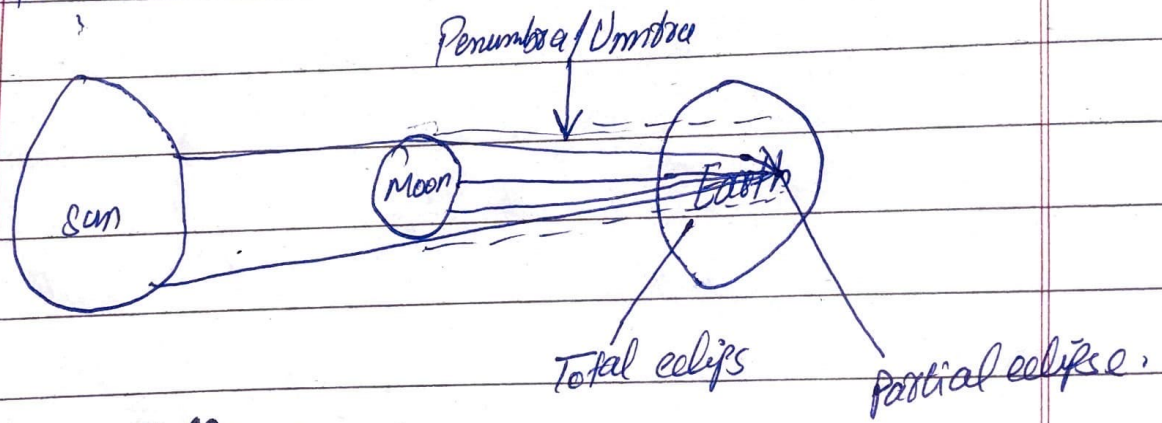 Penumbra/Umbra
Sun
Moon
Earth
Total eclips
Partial eclipse.